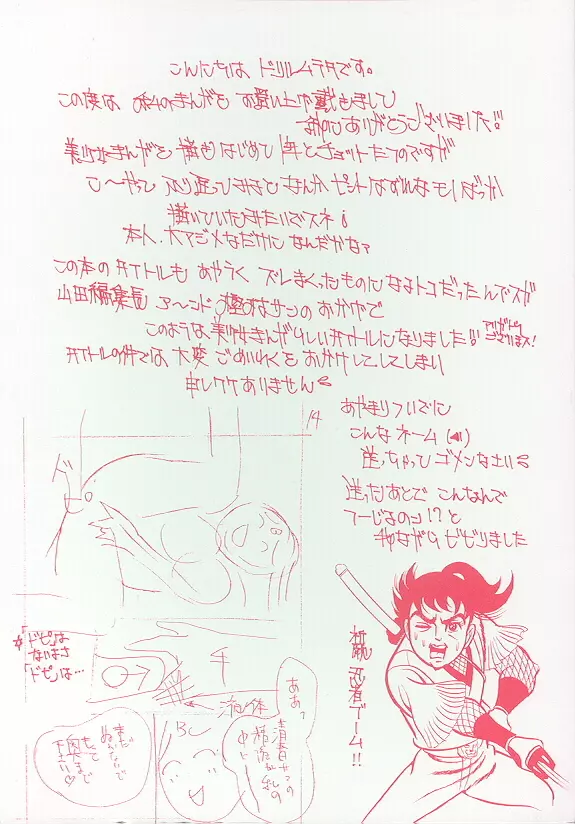 こんにちは ドリルムラタです。
この度は 私のまんがを お買い上げ戴きまして
まことにありがとうございました!!
美少女まんがを 描きはじめて 年とチョットたつのですが
こ〜やって ふり返ってみると なんか ピントはずれなモノばっか
描いていたみたいでスネ
本人、大マジメなだけに なんだかな?
この本の タイトルも あやうく ズレまくったものに なるトコだったんでスガ
山田編集長 ア〜ンド サンの おかげで
このような 美少女まんがらしい タイトルになりました!!
アリガトウ
ございまス!
タイトルの件では 大変 ごめいわくを おかけしてしまい
申しワケ ありません
あやまりついでに
こんな ネーム
送っちゃって ゴメンなさい
送ったあとで こんなんで
つーじるのか!? と
我ながら ビビりました
14
ド
「ドピ」は
ないまさ
「ドピ」は…
チ
液体
ああっ
BC
まだ
ぬかないで
もっと
奥まで
下さい♡
忍者ゲーム!!